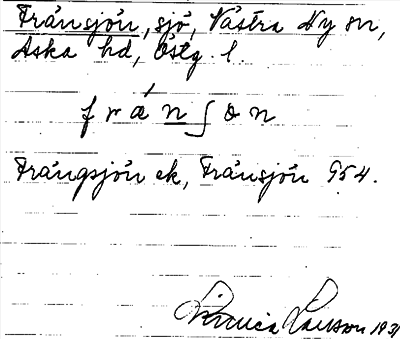 Trånsjön, sjö, Västra Ny sn,
Aska hd, Östg. l.
f r ǻ n ʃ ö n
Trångsjön ek, Trånsjön 954.
Larsson 1931